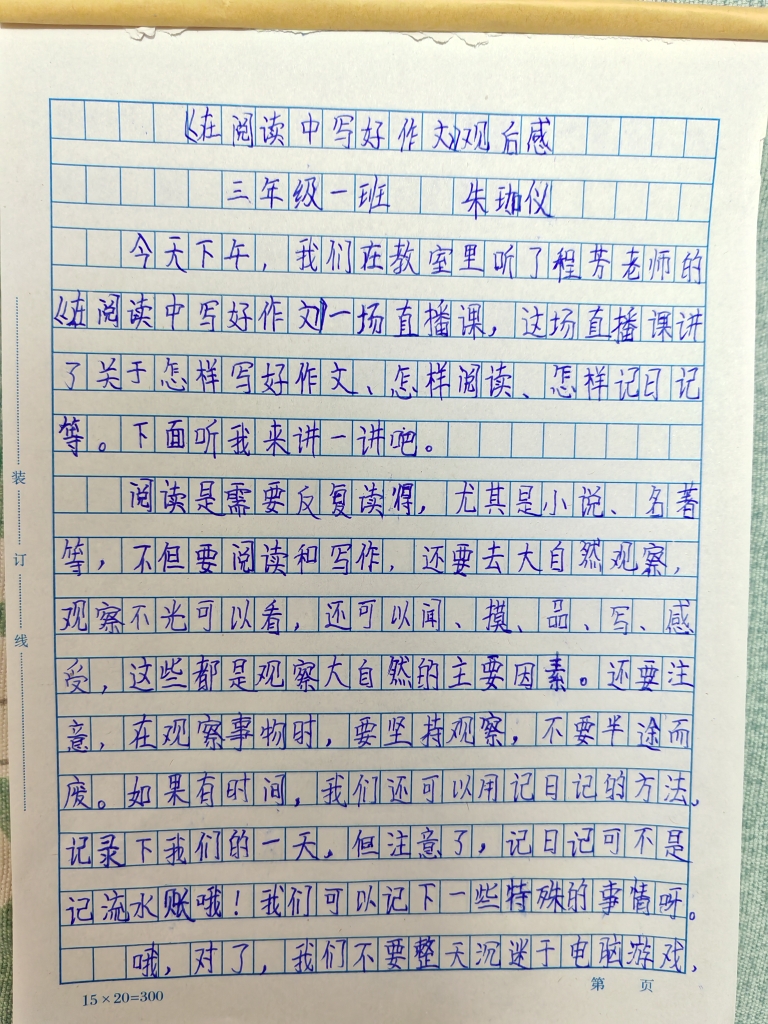 《在阅读中写好作文》观后感
三年级一班 朱珈仪
今天下午，我们在教室里听了程芳老师的
《在阅读中写好作文》一场直播课，这场直播课讲
了关于怎样写好作文、怎样阅读、怎样记日记
等。下面听我来讲一讲吧。
阅读是需要反复读得，尤其是小说、名著
等，不但要阅读和写作，还要去大自然观察，
观察不光可以看，还可以闻、摸、品、写、感
受，这些都是观察大自然的主要因素。还要注
意，在观察事物时，要坚持观察，不要半途而
废。如果有时间，我们还可以用记日记的方法，
记录下我们的一天，但注意了，记日记可不是
记流水账哦！我们可以记下一些特殊的事情呀。
哦，对了，我们不要整天沉迷于电脑游戏，
装
订
线
15×20=300
第 页